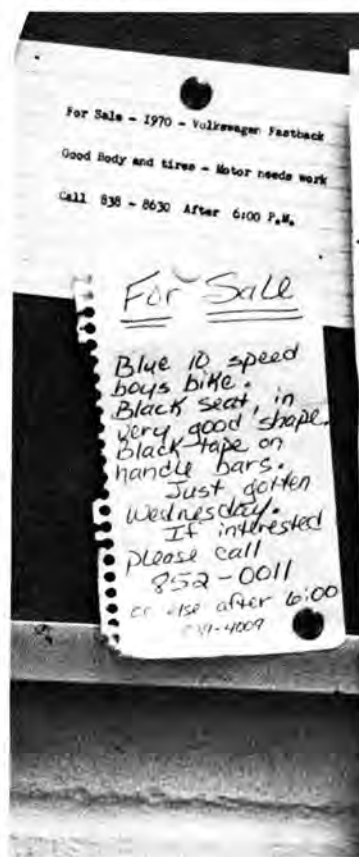 For Sale - 1970 - Volkswagen Fastback
Good Body and tires - Motor needs work
Call 838 - 8630 After 6:00 P.M.
For Sale
Blue 10 speed
boys bike.
Black seat, in
very good shape.
Black tape on
handle bars.
Just gotten
Wednesday.
If interested
please call
852-0011
or else after 6:00
-4009